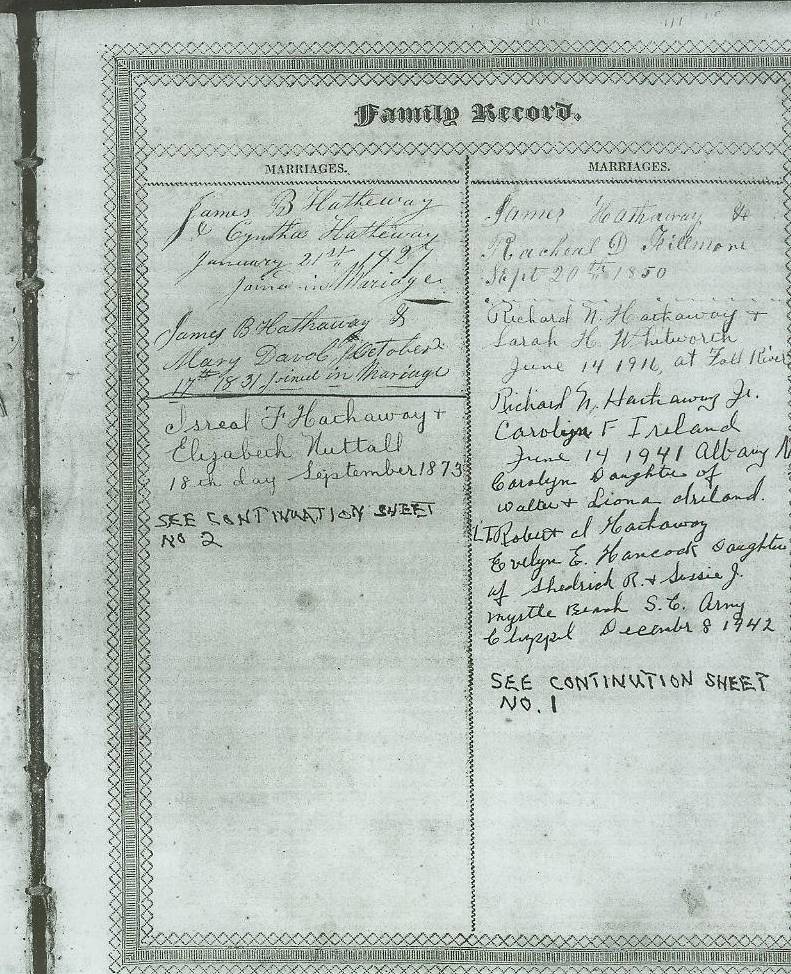 Family Record.
MARRIAGES.
James B Hatheway
& Cynthia Hatheway
January 21st 1827
Joined in Mariage
James B Hathaway &
Mary Davol, October
17th 1831, Joined in Mariage
Isreal F Hathaway +
Elizabeth Nuttall
18th day September 1873
SEE CONTINUATION SHEET
NO 2
MARRIAGES.
James Hathaway &
Racheal D Fillmore
Sept 20th 1850
Richard N. Hathaway +
Sarah H. Whitworth
June 14 1916, at Fall River
Richard N. Hathaway Jr.
Carolyn F Ireland
June 14 1941 Albany N
Carolyn Daughter of
Walter + Liona Ireland.
LT Robert I Hathaway
Evelyn E. Hancock Daughter
of Shedrick R. + Sussie J.
Myrtle Beach S.C. Army
Chappel Decembr 8 1942
SEE CONTINUTION SHEET
NO. 1